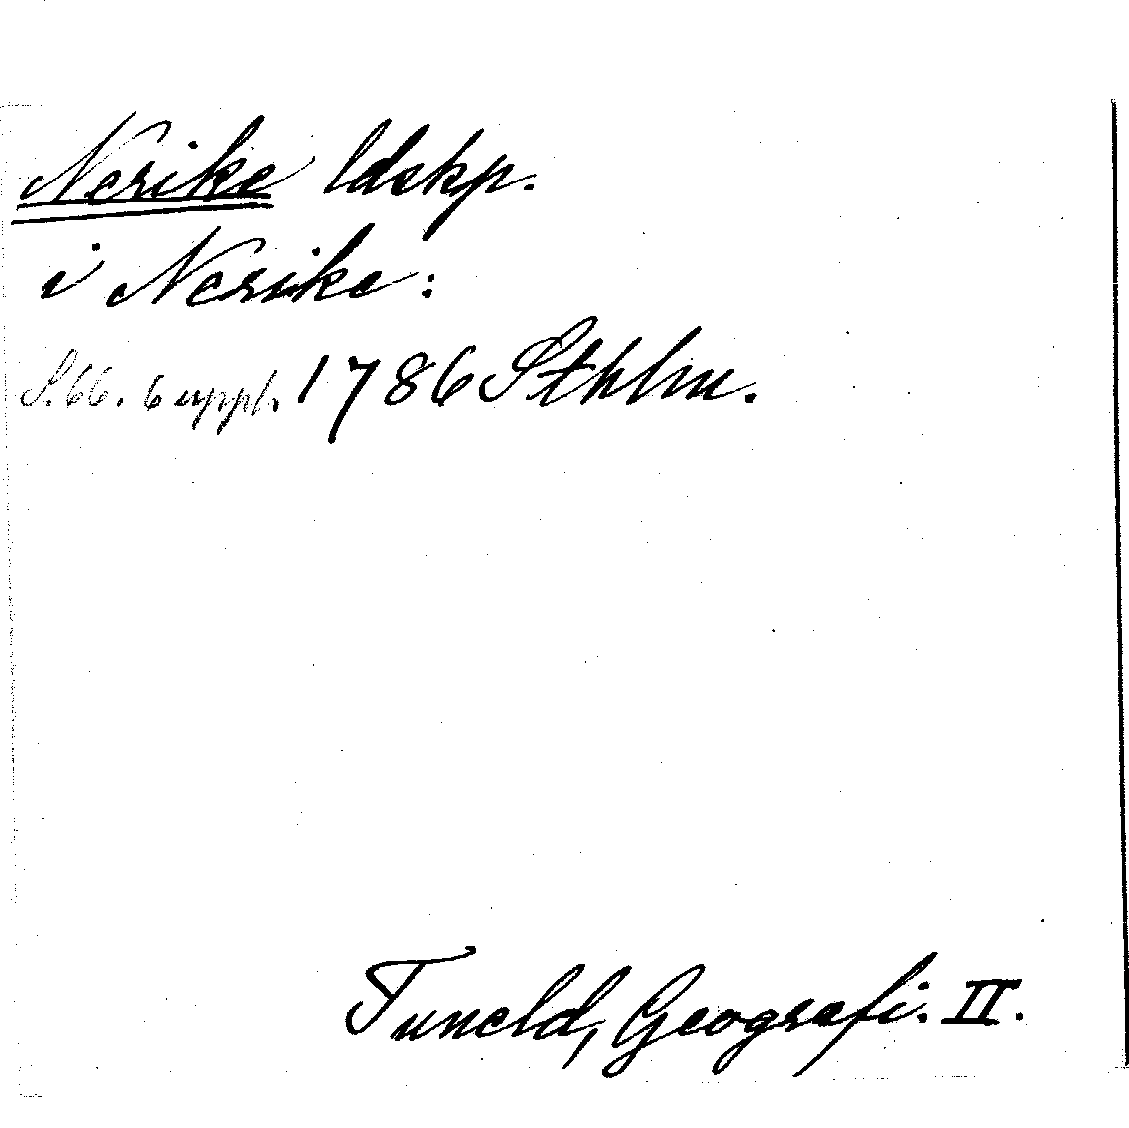 Nerike ldskp.
i Nerike:
S. 66. 6 uppl. 1786 Sthlm.
Tuneld, Geografi. II.